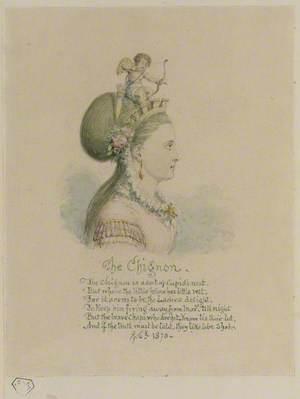 The Chignon.
The Chignon is a sort of Cupid's nest,
But where the little fellow has little rest.
For it seems to be the Ladies delight,
To Keep him firing away from morn till night
But the brave Chaps who don't
And if the truth must be told, they like to be Shot.
1870.